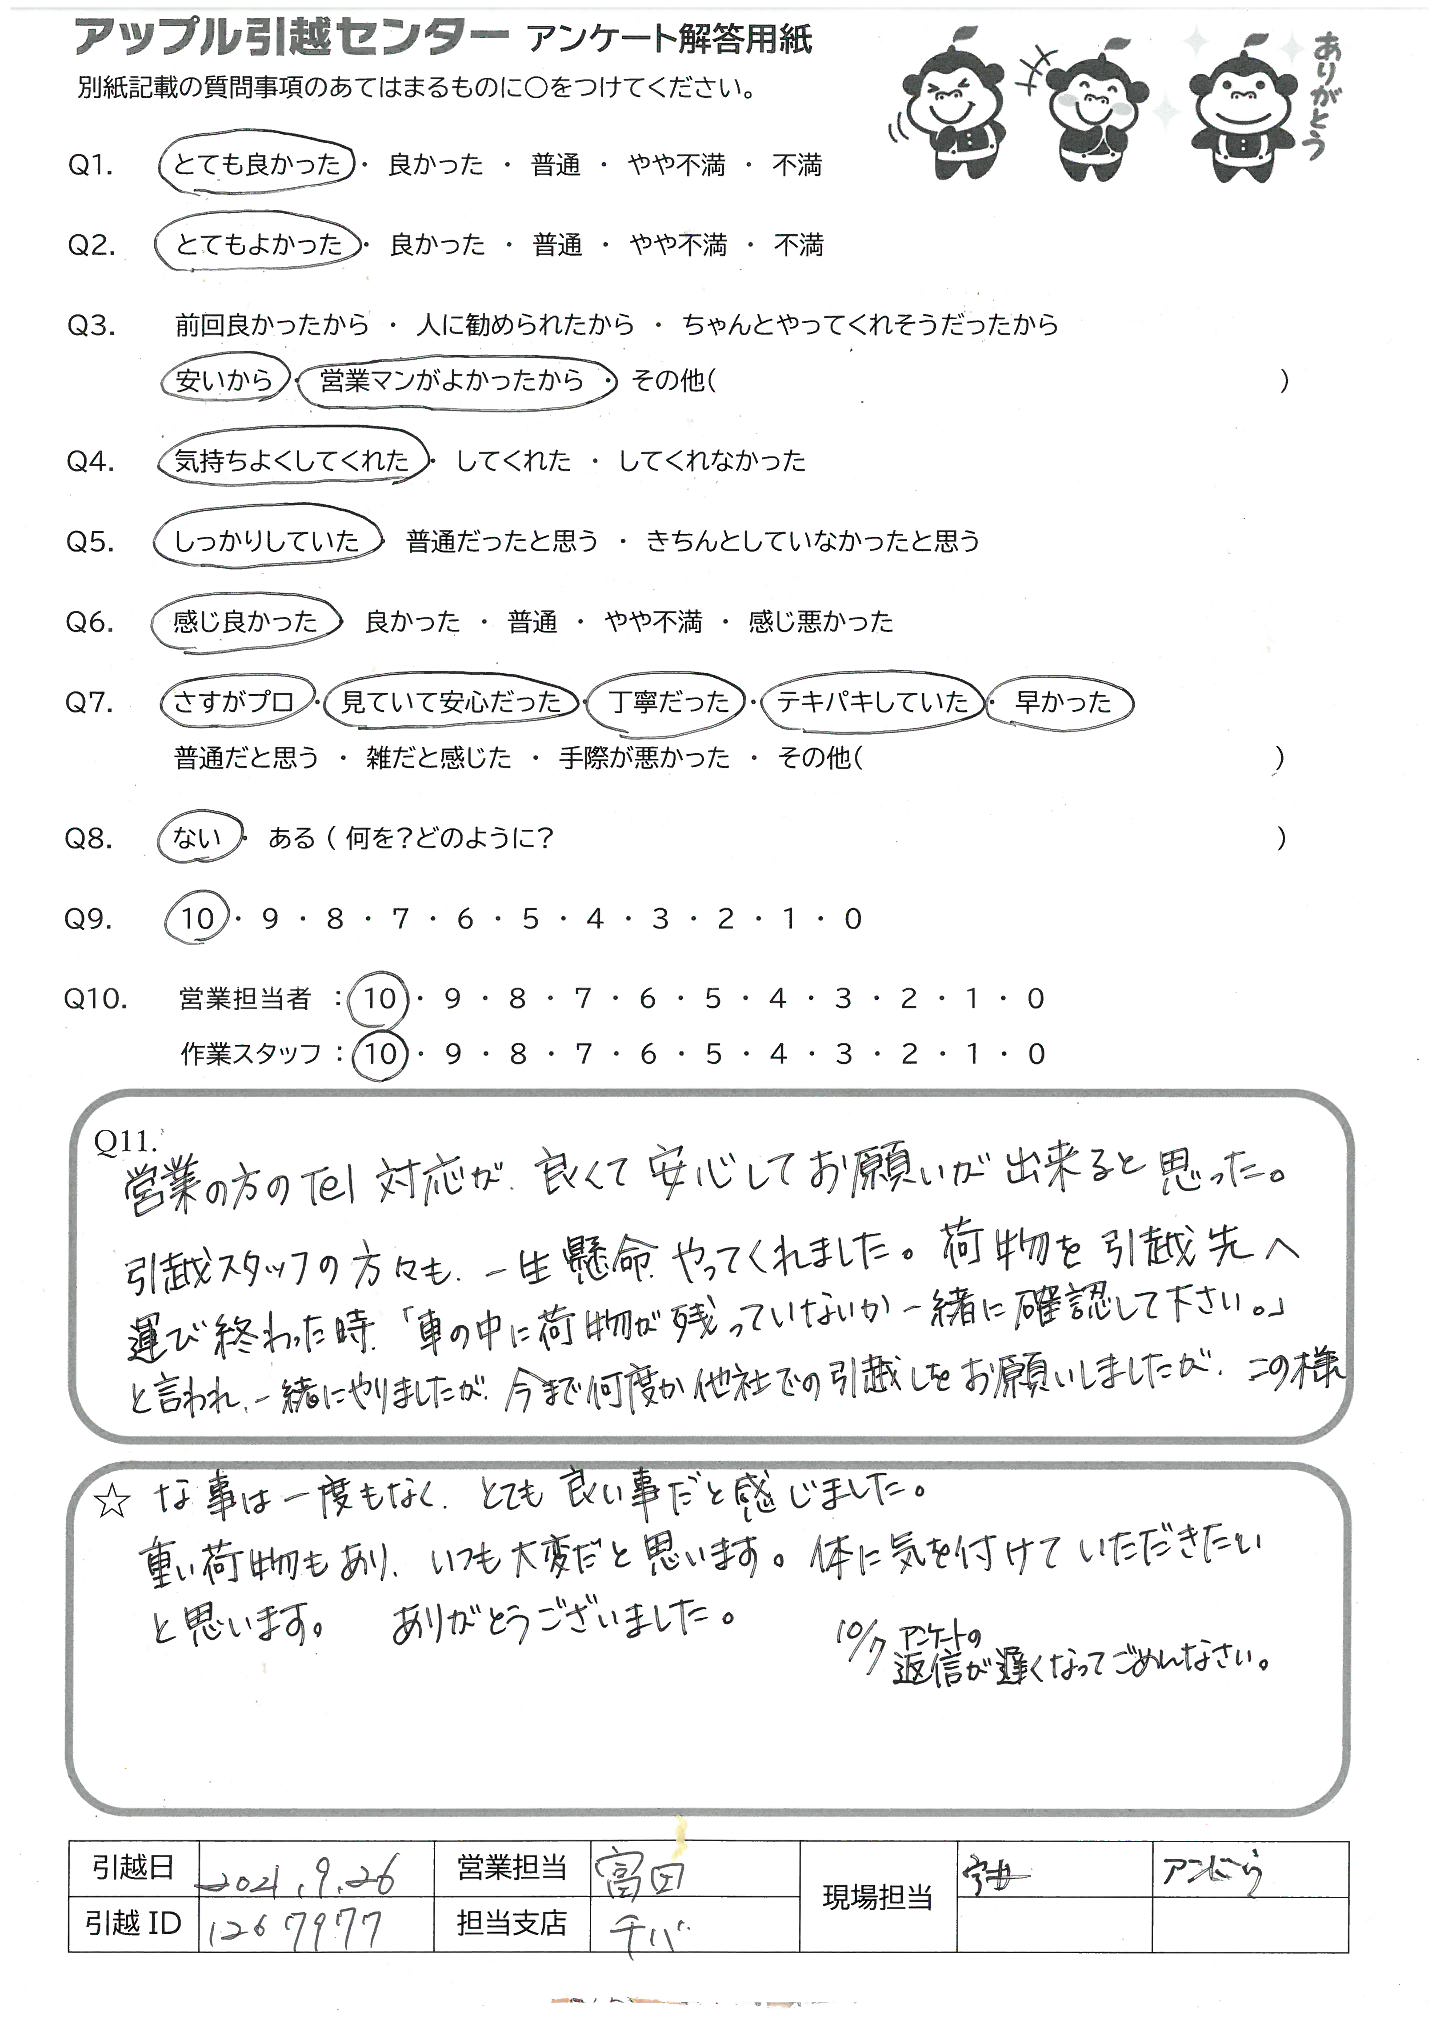 アップル引越センター アンケート解答用紙
ありがとう
別紙記載の質問事項のあてはまるものに○をつけてください。
Q1. とても良かった ・ 良かった ・ 普通 ・ やや不満 ・ 不満
Q2. とてもよかった ・ 良かった ・ 普通 ・ やや不満 ・ 不満
Q3. 前回良かったから ・ 人に勧められたから ・ ちゃんとやってくれそうだったから
安いから ・ 営業マンがよかったから ・ その他( )
Q4. 気持ちよくしてくれた ・ してくれた ・ してくれなかった
Q5. しっかりしていた ・ 普通だったと思う ・ きちんとしていなかったと思う
Q6. 感じ良かった ・ 良かった ・ 普通 ・ やや不満 ・ 感じ悪かった
Q7. さすがプロ ・ 見ていて安心だった ・ 丁寧だった ・ テキパキしていた ・ 早かった
普通だと思う ・ 雑だと感じた ・ 手際が悪かった ・ その他( )
Q8. ない ・ ある ( 何を?どのように? )
Q9. 10 ・ 9 ・ 8 ・ 7 ・ 6 ・ 5 ・ 4 ・ 3 ・ 2 ・ 1 ・ 0
Q10. 営業担当者 : 10 ・ 9 ・ 8 ・ 7 ・ 6 ・ 5 ・ 4 ・ 3 ・ 2 ・ 1 ・ 0
作業スタッフ : 10 ・ 9 ・ 8 ・ 7 ・ 6 ・ 5 ・ 4 ・ 3 ・ 2 ・ 1 ・ 0
Q11.
営業の方のTel対応が、良くて安心してお願いが出来ると思った。
引越スタッフの方々も、一生懸命、やってくれました。荷物を引越先へ
運び終わった時、「車の中に荷物が残っていないか一緒に確認して下さい。」
と言われ、一緒にやりましたが、今まで何度か他社での引越しをお願いしましたが、この様
☆ な事は一度もなく、とても良い事だと感じました。
重い荷物もあり、いつも大変だと思います。体に気を付けていただきたい
と思います。 ありがとうございました。
10/7 アンケートの
返信が遅くなってごめんなさい。
引越日 2021.9.26 営業担当 富田 現場担当 アンビら
引越ID 1267977 担当支店 千バ